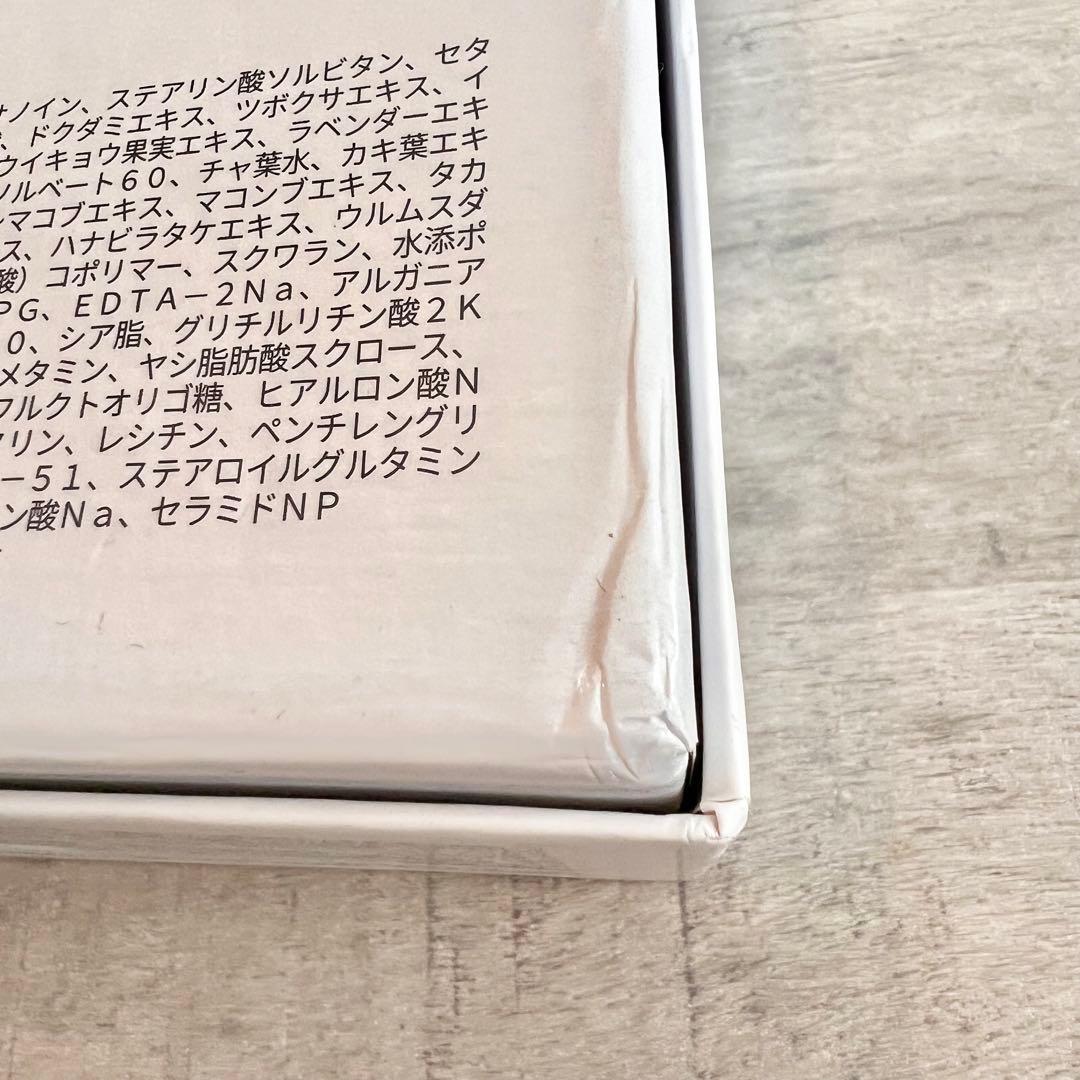 サノイン、ステアリン酸ソルビタン、セタ
、ドクダミエキス、ツボクサエキス、イ
ウイキョウ果実エキス、ラベンダーエキ
ソルベート６０、チャ葉水、カキ葉エキ
ンマコブエキス、マコンブエキス、タカ
ス、ハナビラタケエキス、ウルムスダ
酸）コポリマー、スクワラン、水添ポ
ＰＧ、ＥＤＴＡ－２Ｎａ、アルガニア
０、シア脂、グリチルリチン酸２Ｋ
メタミン、ヤシ脂肪酸スクロース、
フルクトオリゴ糖、ヒアルロン酸Ｎ
リン、レシチン、ペンチレングリ
－５１、ステアロイルグルタミン
ン酸Ｎａ、セラミドＮＰ